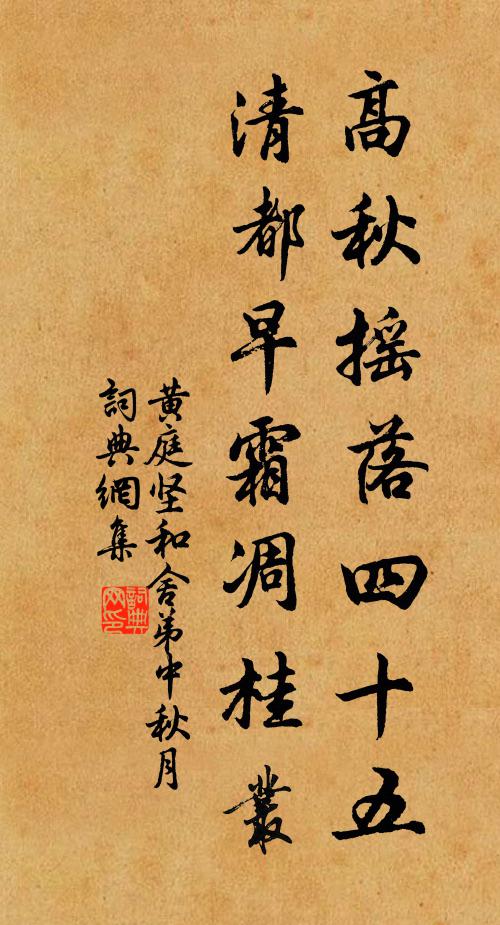 高秋摇落四十五
清都早霜凋桂叢
黄庭坚和舍弟中秋月
詞典網集
詞典网印